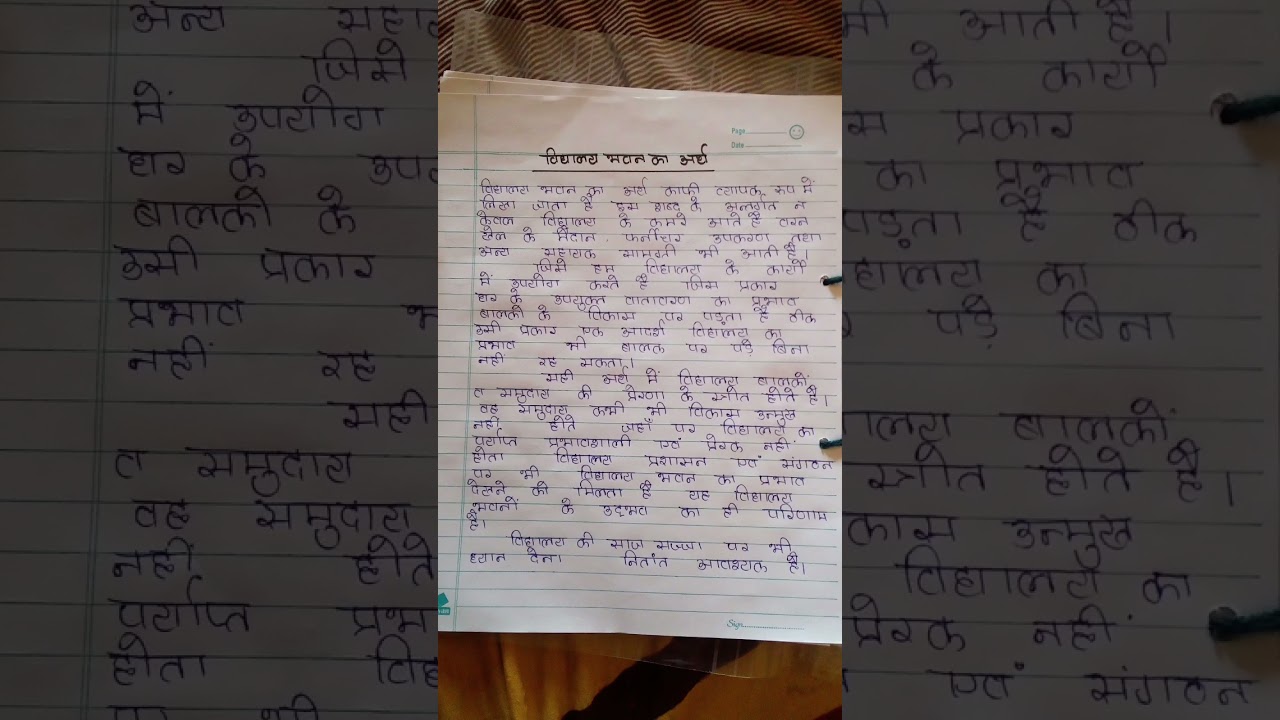 Page
Date
विद्यालय भवन का अर्थ
विद्यालय भवन का अर्थ काफी व्यापक रूप में
लिया जाता है इस शब्द के अन्तर्गत न
केवल विद्यालय के कमरे आते है वरन
खेल के मैदान, फर्नीचर उपकरण तथा
अन्य सहायक सामग्री भी आती है।
जिसे हम विद्यालय के कार्यो
में उपयोग करते है जिस प्रकार
घर के उपयुक्त वातावरण का प्रभाव
बालकों के विकास पर पड़ता है ठीक
उसी प्रकार एक आदर्श विद्यालय का
प्रभाव भी बालक पर पड़े बिना
नहीं रह सकता।
सही अर्थ में विद्यालय बालकों
व समुदाय की प्रेरणा के स्त्रोत होते है।
वह समुदाय कभी भी विकास उन्मुख
नहीं होते जहाँ पर विद्यालयों का
पर्याप्त प्रभावशाली एवं प्रेरक नहीं
होता विद्यालय प्रशासन एवं संगठन
पर भी विद्यालय भवन का प्रभाव
देखने को मिलता है यह विद्यालय
भवनों के उद्भव का ही परिणाम
है।
विद्यालय की साज सज्जा पर भी
ध्यान देना नितांत आवश्यक है।
Sign